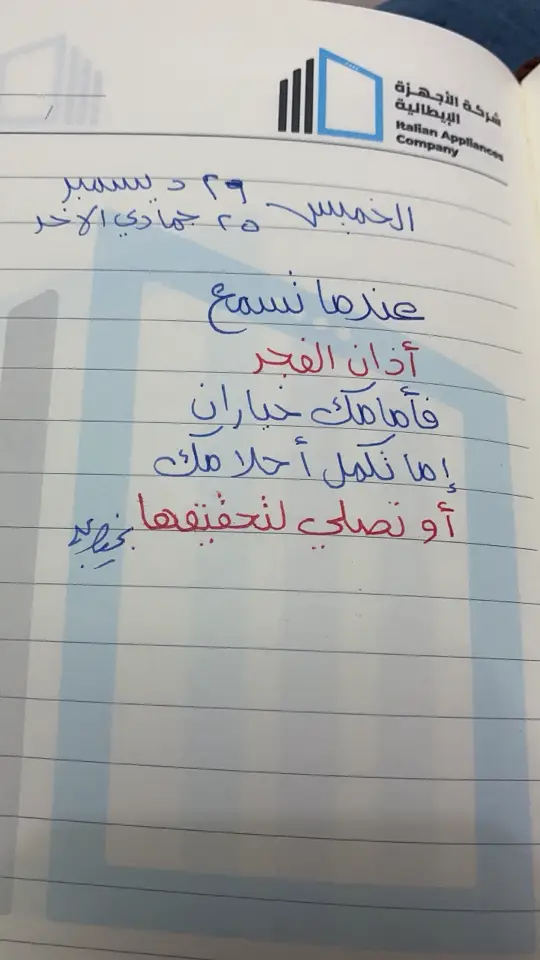 شركة الأجهزة
الإيطالية
Italian Appliances
Company
الخميس ٢٩ ديسمبر
٢٥ جمادي الاخر
عندما نسمع
أذان الفجر
فأمامك خياران
إما تكمل أحلامك
أو تصلي لتحقيقها